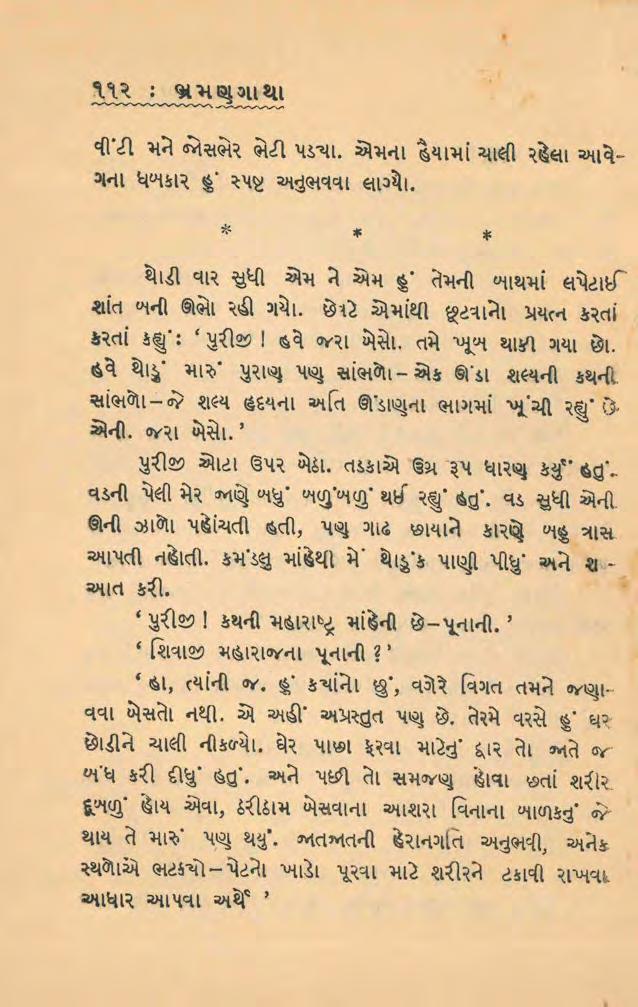 ૧૧૨ : ભ્રમણગાથા
વીંટી મને જોસભેર ભેટી પડ્યા. એમના હૈયામાં ચાલી રહેલા આવે-
ગના ધબકાર હું સ્પષ્ટ અનુભવવા લાગ્યો.
* * *
થોડી વાર સુધી એમ ને એમ હું તેમની બાથમાં લપેટાઈ
શાંત બની ઊભો રહી ગયો. છેવટે એમાંથી છૂટવાનો પ્રયત્ન કરતાં
કરતાં કહ્યું: ‘પુરીજી ! હવે જરા બેસો. તમે ખૂબ થાકી ગયા છો.
હવે થોડું મારું પુરાણ પણ સાંભળો–એક ઊંડા શલ્યની કથની
સાંભળો–જે શલ્ય હૃદયના અતિ ઊંડાણના ભાગમાં ખૂંચી રહ્યું છે
એની. જરા બેસો.’
પુરીજી ઓટા ઉપર બેઠા. તડકાએ ઉગ્ર રૂપ ધારણ કર્યું હતું.
વડની પેલી મેર જાણે બધું બળુંબળું થઈ રહ્યું હતું. વડ સુધી એની
ઊની ઝાળો પહોંચતી હતી, પણ ગાઢ છાયાને કારણે બહુ ત્રાસ
આપતી નહોતી. કમંડલુ માંહેથી મેં થોડુંક પાણી પીધું અને શ -
આત કરી.
‘પુરીજી ! કથની મહારાષ્ટ્ર માંહેની છે–પૂનાની.’
‘શિવાજી મહારાજના પૂનાની ?’
‘હા, ત્યાંની જ. હું ક્યાંનો છું, વગેરે વિગત તમને જણા-
વવા બેસતો નથી. એ અહીં અપ્રસ્તુત પણ છે. તેરમે વરસે હું ઘર
છોડીને ચાલી નીકળ્યો. ઘેર પાછા ફરવા માટેનું દ્વાર તો જાતે જ
બંધ કરી દીધું હતું. અને પછી તો સમજણ હોવા છતાં શરીર
દૂબળું હોય એવા, ઠરીઠામ બેસવાના આશરા વિનાના બાળકનું જે
થાય તે મારું પણ થયું. જાતજાતની હેરાનગતિ અનુભવી, અનેક
સ્થળોએ ભટક્યો–પેટનો ખાડો પૂરવા માટે શરીરને ટકાવી રાખવા
આધાર આપવા અર્થે ’